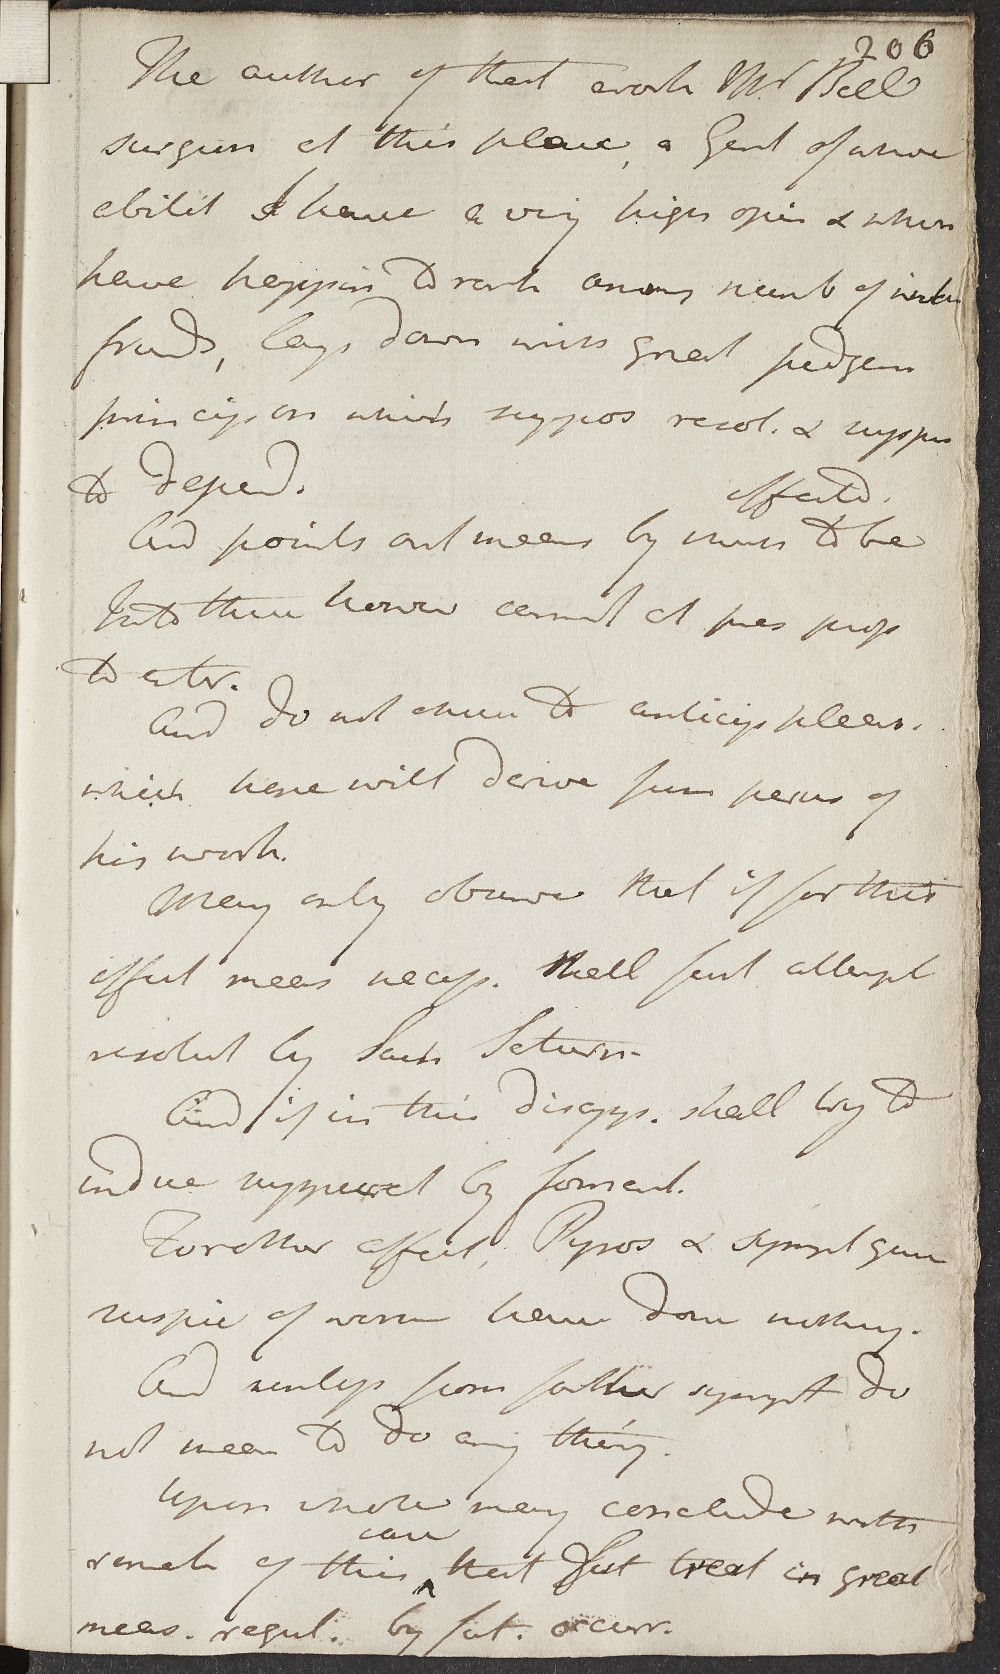 206
The author of that work Mr Bell
surgeon at this place, a Gent of whose
abilit I have a very high opin & whom
have happin to rank among numb of intim
friends, lays down with great judgem
princip on which suppos resol. & suppur
to depend.
And points out means by which to be effectd.
Into these howev cannot at pres prop
to entr.
And do not chuse to anticip pleas.
which here will derive from perus of
his work.
May only observe that if for this
effect meas necess. shall first attempt
resolut by Sacch Saturn.
And if in this disapp. shall try to
induce suppurat by foment.
For other affect, Pyros & sympt giv
suspic of worm have done nothing.
And unless from further sympt do
not mean to do any thing.
Upon whole may conclude with
remark of this case that fut treat in great
meas. regul. by fut. occurr.